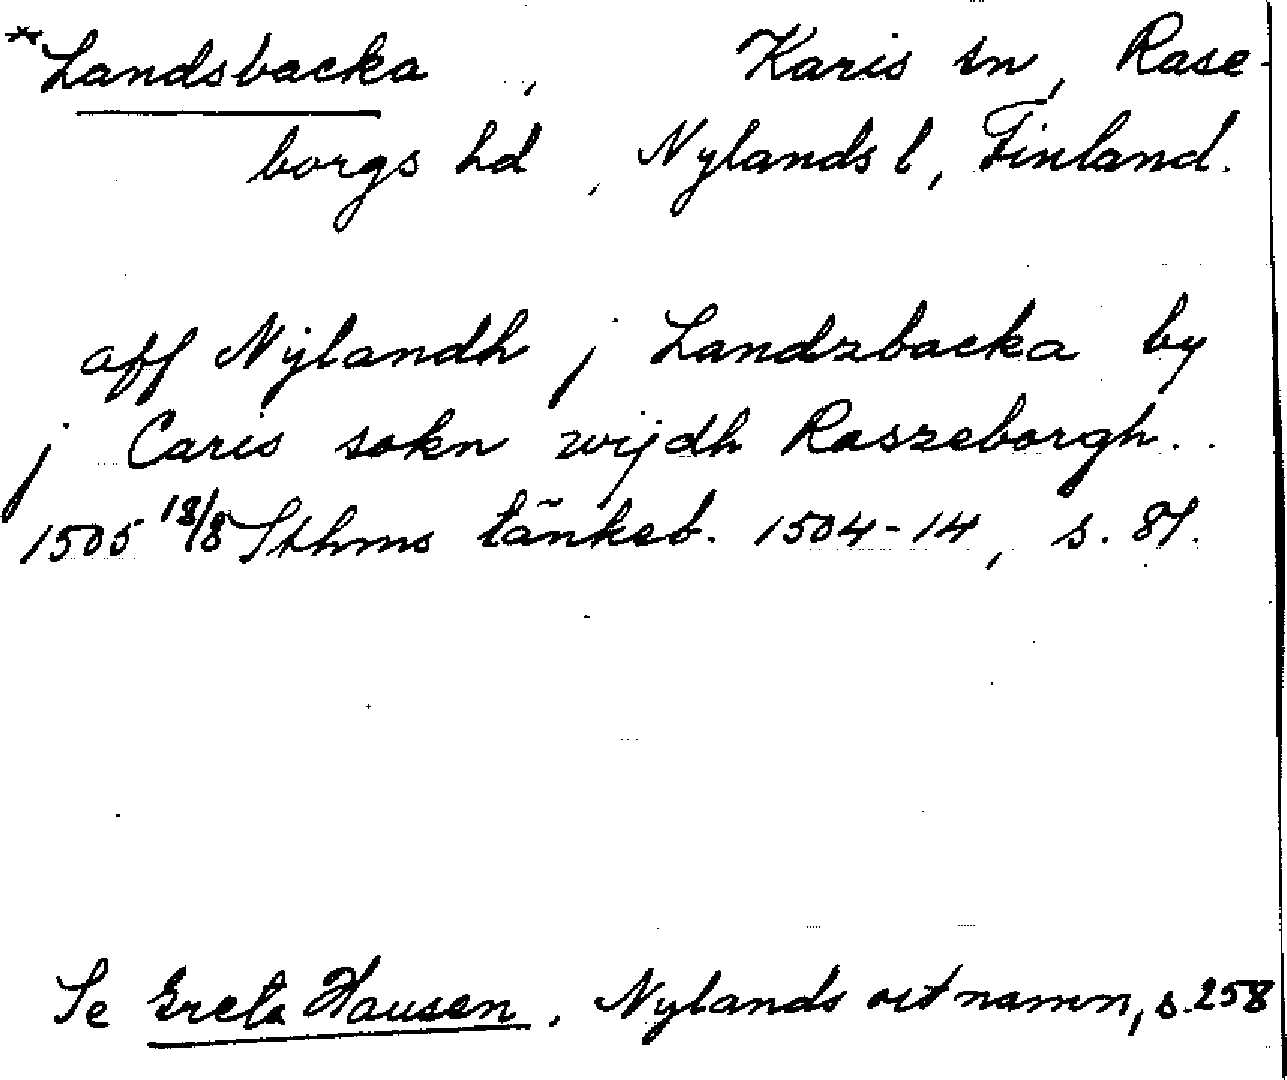 *Landsbacka, Karis sn, Rase-
borgs hd, Nylands l, Finland.
aff Nylandh j Landzbacka by
j Caris sokn wijdh Raszeborgh..
1505 18/8 Sthms tänkeb. 1504-14, s. 87.
Se Greta Hausen, Nylands ortnamn, s. 258